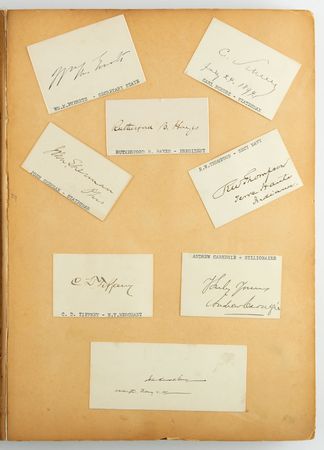 Wm M. Evarts
WM.M.EVERETS - SECRETARY STATE
C. Schurz
July 24, 1894
CARL SCHURZ - STATESMAN
Rutherford B. Hayes
RUTHERFORD B. HAYES - PRESIDENT
John Sherman
Ohio
JOHN SHERMAN - STATESMAN
R.W.THOMPSON - SECY NAVY
R W Thompson
Terre Haute
Indiana
C. L. Tiffany
C. L. TIFFNEY - N.Y.MERCHANT
ANDREW CARNEGIE - MILLIONAIRE
Truly Yours
Andrew Carnegie